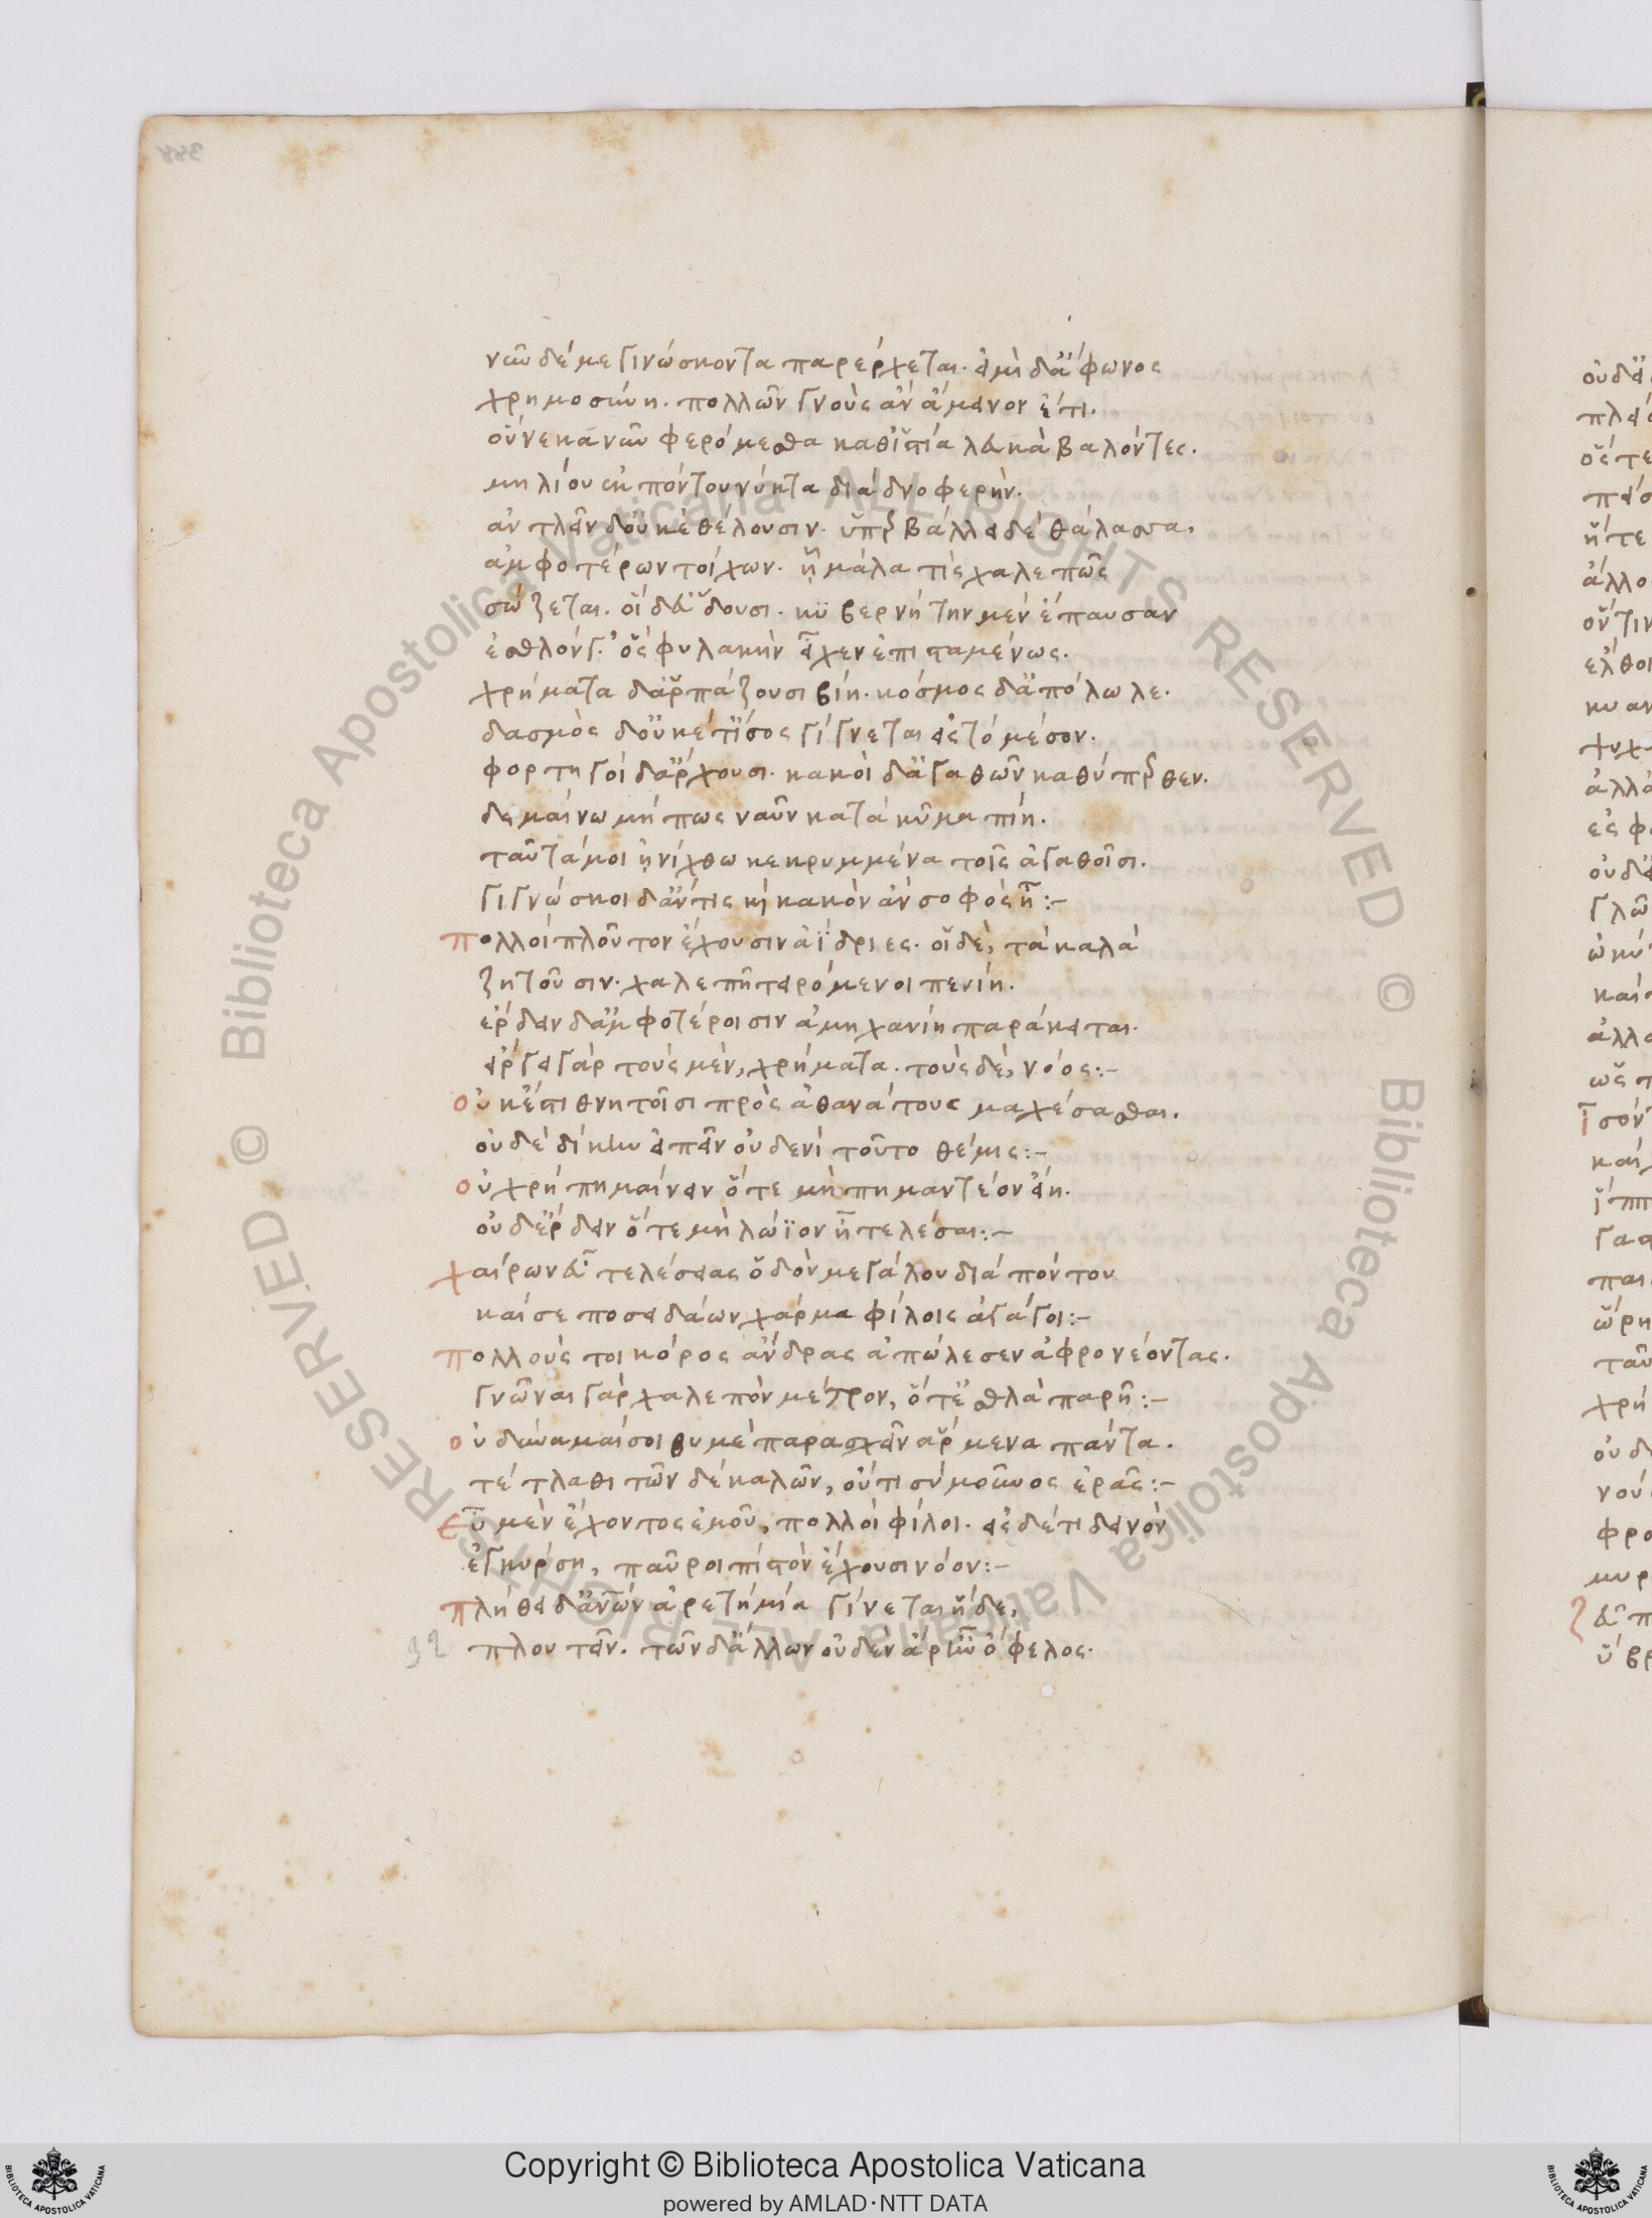 νῶν δέ με γινώσκοντα παρέρχεται. εἰμὶ δ' ἄφωνος
χρημοσύνη. πολλῶν γνοὺς ἂν ἄμεινον ἔτι.
οὕνεκα νῦν φερόμεσθα καθ' ἱστία λευκὰ βαλόντες.
μηλίου ἐκ πόντου νύκτα διὰ δνοφερήν.
ἀντλεῖν δ' οὐκ ἐθέλουσιν. ὑπερβάλλει δὲ θάλασσα,
ἀμφοτέρων τοίχων. ἦ μάλα τὶς χαλεπῶς
σώζεται. οἵ δ' εὕδουσι. κυβερνήτην μὲν ἔπαυσαν
ἐσθλόν γ'. ὅς φυλακὴν εἶχεν ἐπισταμένως.
χρήματα δ' ἁρπάζουσι βίη. κόσμος δ' ἀπόλωλε.
δασμὸς δ' οὐκέτ' ἴσος γίγνεται εἰς τὸ μέσον.
φορτηγοί δ' ἄρχουσι. κακοὶ δ' ἀγαθῶν καθύπερθεν.
δειμαίνω μή πως ναῦν κατὰ κῦμα πίη.
ταῦτά μοι ᾐνίχθω κεκρυμμένα τοῖς ἀγαθοῖσι.
γιγνώσκοι δ' ἄν τις κὴ κακὸν ἂν σοφὸς ἦ:-
πολλοὶ πλοῦτον ἔχουσιν ἀΐδριες. οἵ δὲ, τὰ καλὰ
ζητοῦσιν. χαλεπῆ τειρόμενοι πενίη.
ἔρδειν δ' ἀμφοτέροισιν ἀμηχανίη παράκειται.
εἴργει γὰρ τοὺς μὲν, χρήματα. τοὺς δὲ, νόος:-
οὐκ ἔστι θνητοῖσι πρὸς ἀθανάτους μαχέσασθαι.
οὐδὲ δίκην εἰπεῖν οὐδενὶ τοῦτο θέμις:-
οὐ χρὴ πημαίνειν ὅτε μὴ πημαντέον εἴη.
οὐδ' ἔρδειν ὅτε μὴ λώϊον ἦ τελέσαι:-
χαίρων εὖ τελέσειας ὁδὸν μεγάλου διὰ πόντου
καί σε ποσειδάων χάρμα φίλοις ἀγάγοι:-
πολλούς τοι κόρος ἄνδρας ἀπώλεσεν ἀφρονέοντας.
γνῶναι γὰρ χαλεπὸν μέτρον, ὅτ' ἐσθλὰ παρῆ:-
οὐ δύναμαί σοι θυμὲ παρασχεῖν ἄρμενα πάντα.
τέτλαθι τῶν δὲ καλῶν, οὔτι σὺ μοῦνος ἐρᾶς:-
εὖ μὲν ἔχοντος ἐμοῦ, πολλοὶ φίλοι. εἰς δέ τι δεινὸν
ἐγκύρση, παῦροι πιστὸν ἔχουσι νόον:-
πλήθει δ' ἀνῶν ἀρετὴ μία γίνεται ἥδε,
πλουτεῖν. τῶν δ' ἄλλων οὐδὲν ἄρ' ἦν ὄφελος.
92
Copyright © Biblioteca Apostolica Vaticana
powered by AMLAD·NTT DATA